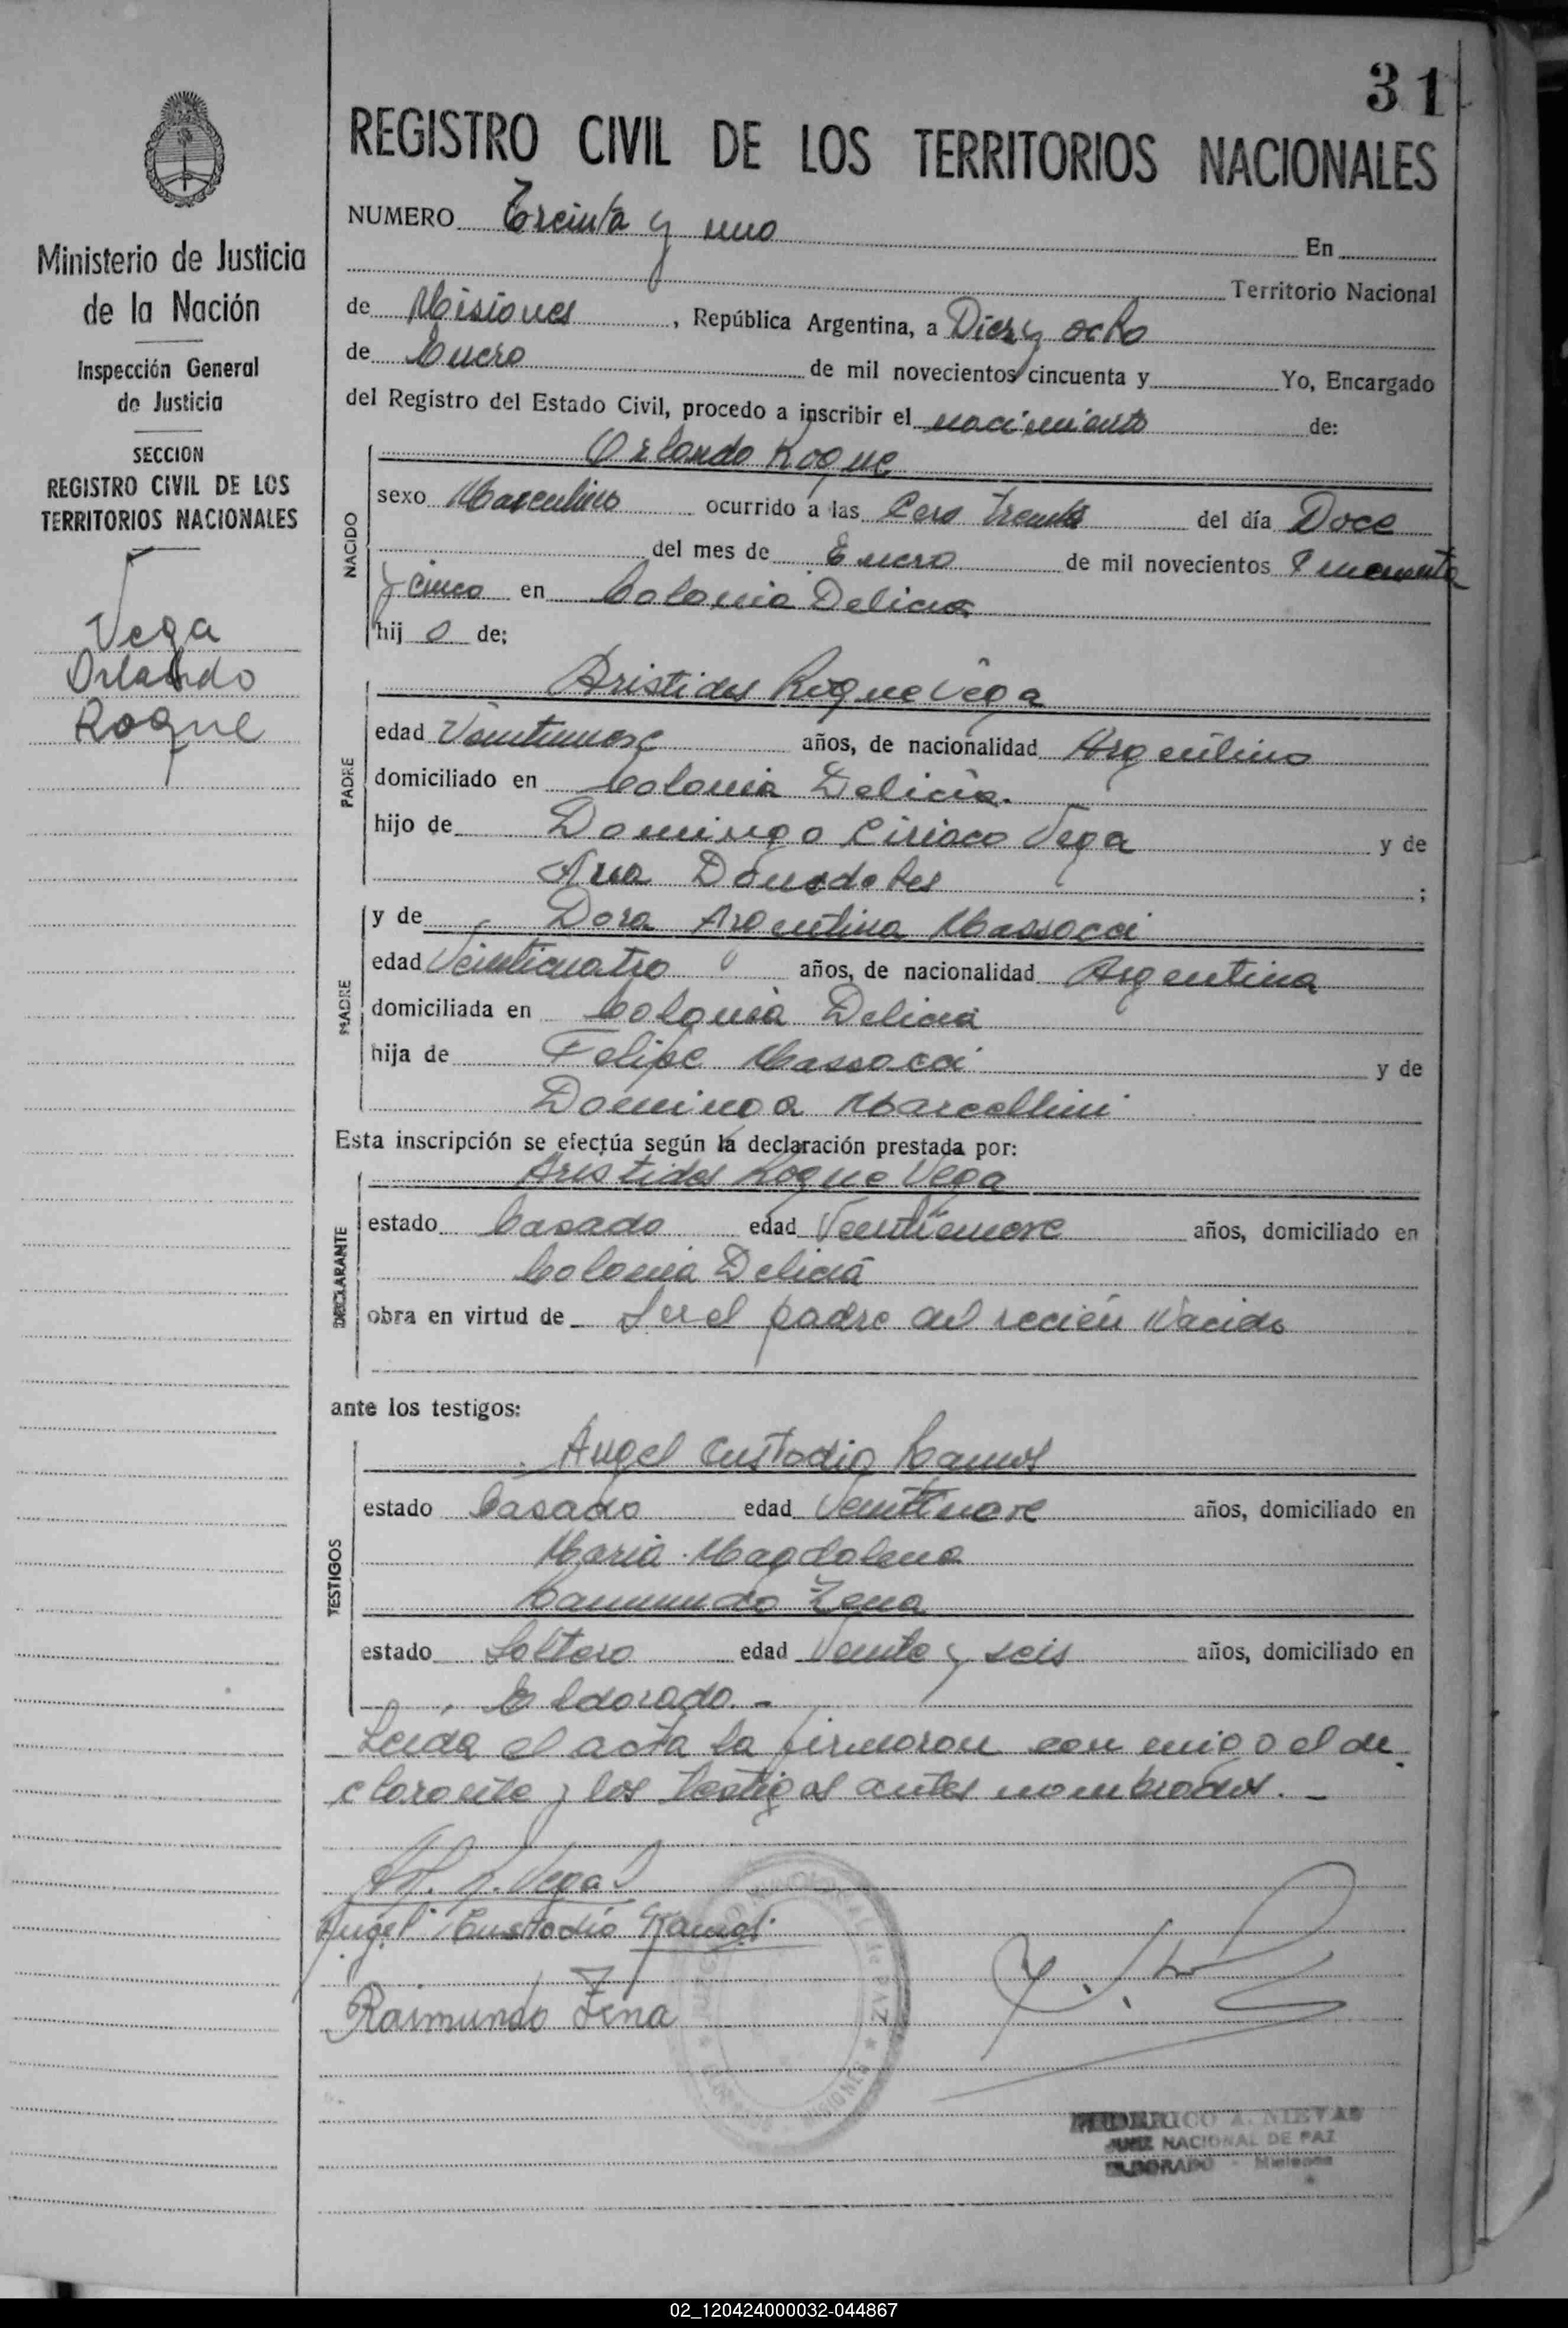 31
REGISTRO CIVIL DE LOS TERRITORIOS NACIONALES
NUMERO Treinta y uno En
Territorio Nacional
de Misiones, República Argentina, a Diez y ocho
de Enero de mil novecientos cincuenta y Yo, Encargado
del Registro del Estado Civil, procedo a inscribir el nacimiento de:
Ministerio de Justicia
de la Nación
Inspección General
de Justicia
SECCION
REGISTRO CIVIL DE LOS
TERRITORIOS NACIONALES
Vega
Orlando
Roque
NACIDO
Orlando Roque
sexo Masculino ocurrido a las Cero treinta del día Doce
del mes de Enero de mil novecientos Cincuenta
y cinco en Colonia Delicia
hij o de:
PADRE
Aristides Roque Vega
edad Veintinueve años, de nacionalidad Argentino
domiciliado en Colonia Delicia.
hijo de Domingo Ciriaco Vega y de
Ana ;
MADRE
y de Dora Argentina Massocci
edad Veinticuatro años, de nacionalidad Argentina
domiciliada en Colonia Delicia
hija de Felipe Massocci y de
Dominga Marcellini
Esta inscripción se efectúa según la declaración prestada por:
DECLARANTE
Aristides Roque Vega
estado Casado edad Veintinueve años, domiciliado en
Colonia Delicia
obra en virtud de Ser el padre del recién Nacido
ante los testigos:
TESTIGOS
Angel Custodio Ramos
estado Casado edad Veintinueve años, domiciliado en
Maria Magdalena
Raimundo Zena
estado Soltero edad Veinte y seis años, domiciliado en
Eldorado. -
Leida el acta la firmaron con migo el de
clarante y los testigos antes nombrados. -
Vega
Angel Custodio Ramos
Raimundo Zena
PAZ
MISIONES
FEDERICO A. NIEVAS
JUEZ NACIONAL DE PAZ
ELDORADO - Misiones
02_120424000032-044867